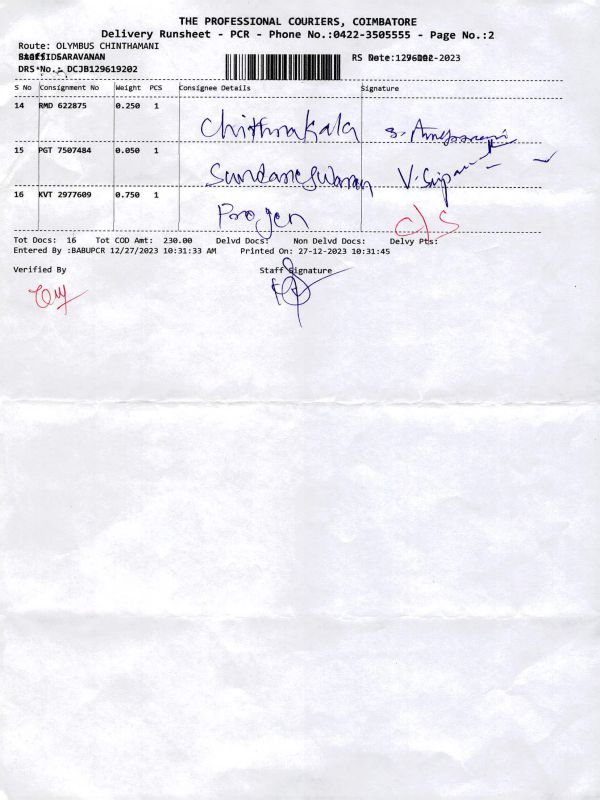 THE PROFESSIONAL COURIERS, COIMBATORE
Delivery Runsheet - PCR - Phone No.:0422-3505555 - Page No.:2
Route: OLYMBUS CHINTHAMANI
SARAVANAN
RS Date: -2023
DRS No.: DCJB129619202
S No Consignment No Weight PCS Consignee Details Signature
14 RMD 622875 0.250 1 Chithrakala
15 PGT 7507484 0.050 1 Sundareswaran
16 KVT 2977609 0.750 1 Progen C/S
Tot Docs: 16 Tot COD Amt: 230.00 Delvd Docs: Non Delvd Docs: Delvy Pts:
Entered By :BABUPCR 12/27/2023 10:31:33 AM Printed On: 27-12-2023 10:31:45
Verified By Staff Signature